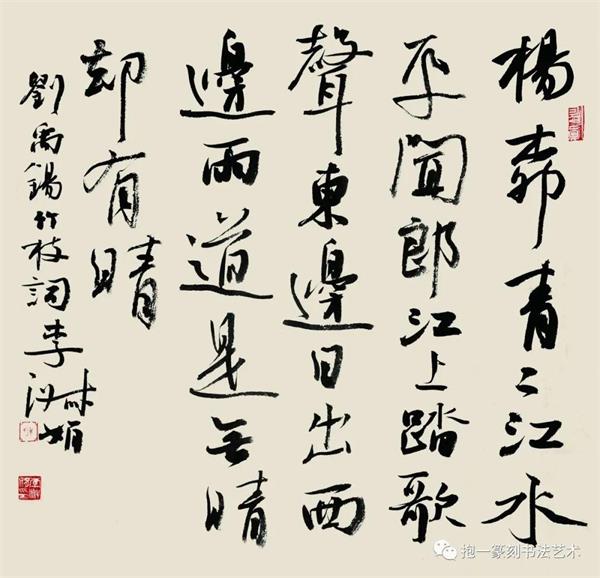 楊柳青〻江水
平聞郎江上踏歌
聲東邊日出西
邊雨道是無晴
却有晴
劉禹錫竹枝詞李
抱一篆刻书法艺术